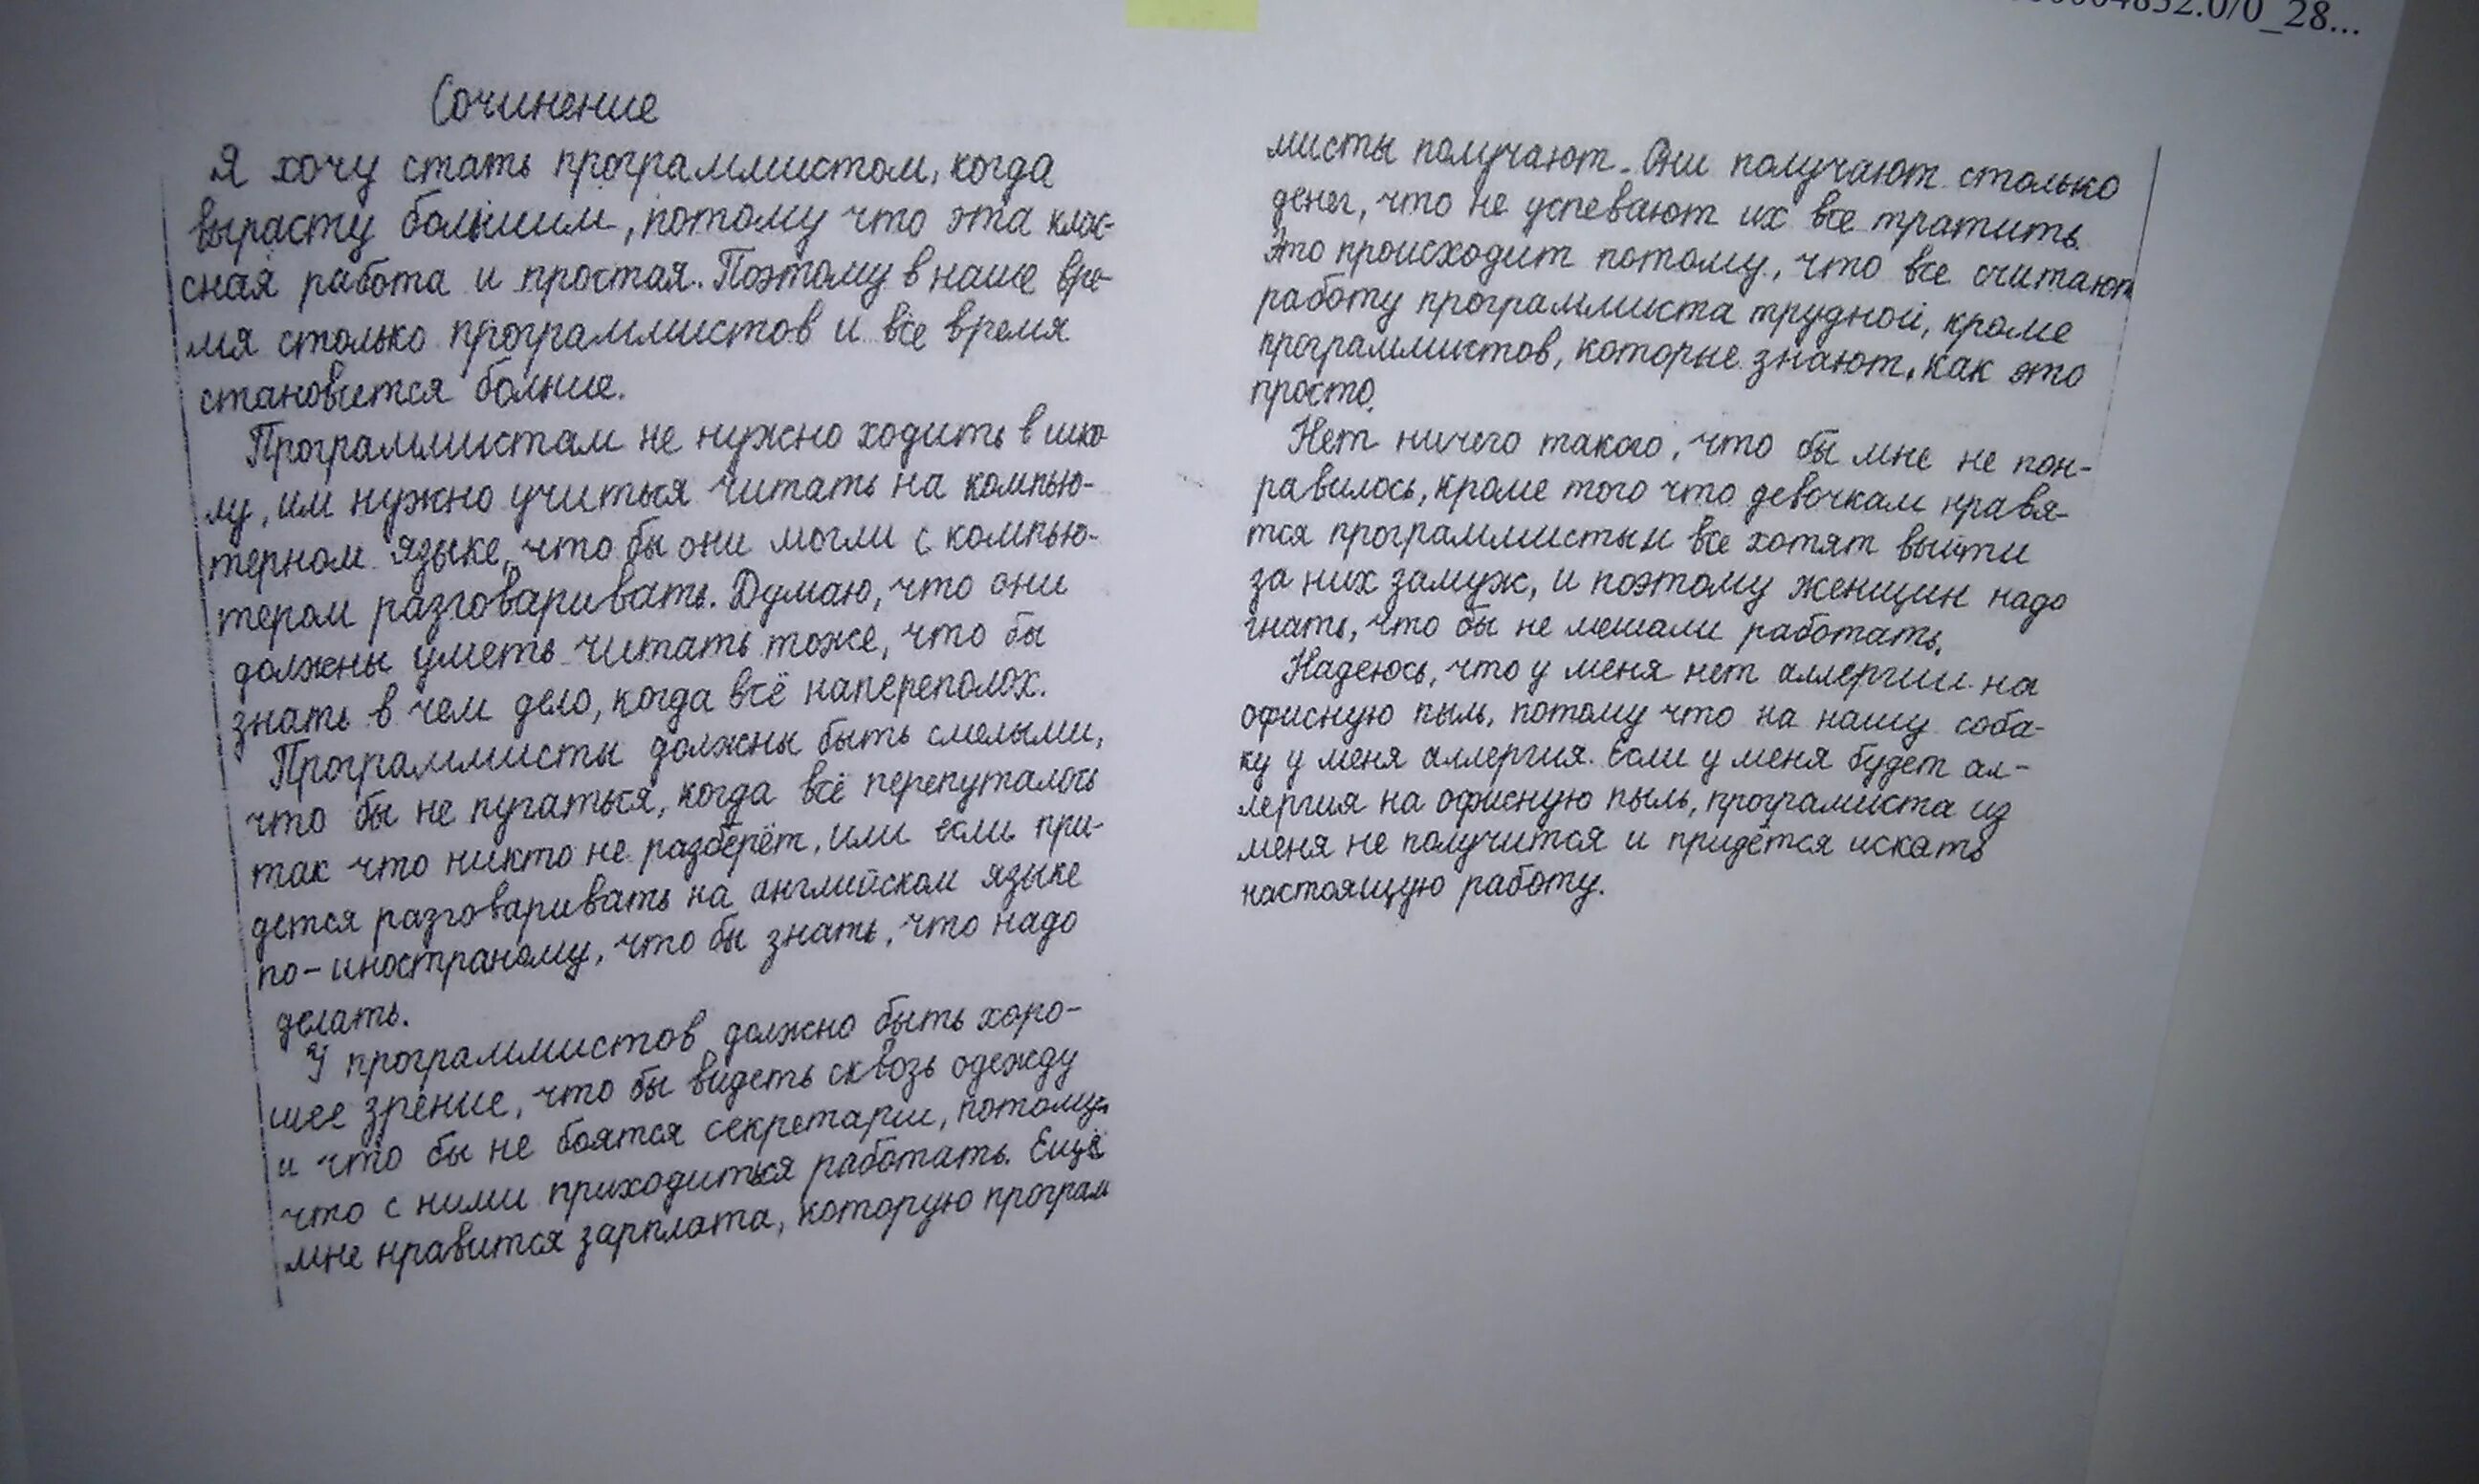 Сочинение
Я хочу стать программистом, когда
вырасту большим, потому что эта клас-
сная работа и простая. Поэтому в наше вре-
мя столько программистов и все время
становится болше.
Программистам не нужно ходить в шко
лу, им нужно учиться читать на компью-
терном языке, что бы они могли с компью-
тером разговаривать. Думаю, что они
должны уметь читать тоже, что бы
знать в чем дело, когда всё наперeполох.
Программисты должны быть смелыми,
что бы не пугаться, когда всё перепуталось
так что никто не разберёт, или если при-
дется разговаривать на английском языке
по-иностраному, что бы знать, что надо
делать.
У программистов должно быть хоро-
шее зрение, что бы видеть сквозь одежду
и что бы не боятся секретарш, потому
что с ними приходиться работать. Ещё
мне нравится зарплата, которую програм
мисты получают. Они получают столько
денег, что не успевают их все тратить.
Это происходит потому, что все считают
работу программиста трудной, кроме
программистов, которые знают, как это
просто.
Нет ничего такого, что бы мне не пон-
равилось, кроме того что девочкам нравя-
тся программисты и все хотят выйти
за них замуж, и поэтому женщин надо
гнать, что бы не мешали работать.
Надеюсь, что у меня нет аллергии на
офисную пыль, потому что на нашу соба-
ку у меня аллергия. Если у меня будет ал-
лергия на офисную пыль, програмиста из
меня не получится и придётся искать
настоящую работу.